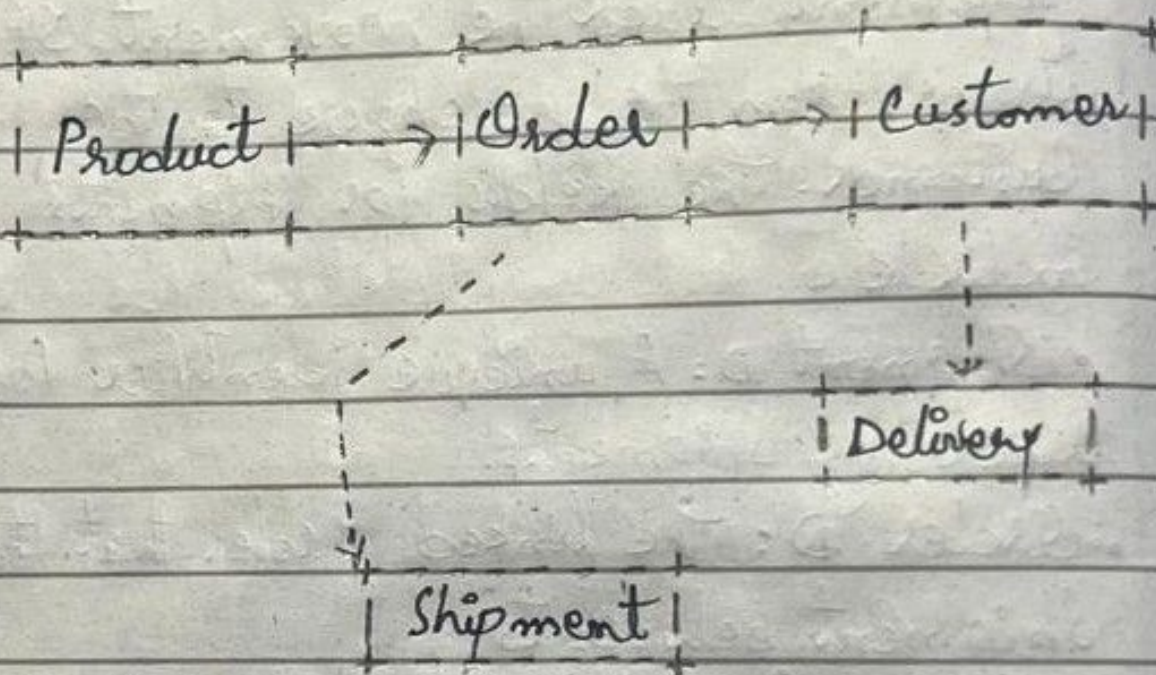 Product Order Customer
Delivery
Shipment